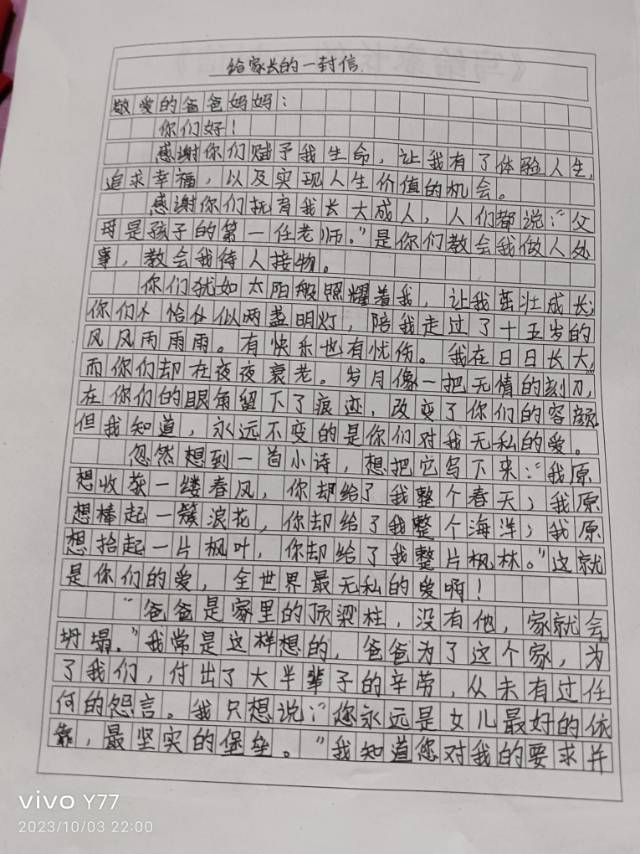 给家长的一封信
敬爱的爸爸妈妈:
你们好!
感谢你们赋予我生命,让我有了体验人生,
追求幸福,以及实现人生价值的机会。
感谢你们抚育我长大成人,人们都说:"父
母是孩子的第一任老师。"是你们教会我做人处
事,教会我待人接物。
你们犹如太阳般照耀着我,让我茁壮成长;
你们恰似两盏明灯,陪我走过了十五岁的
风风雨雨。有快乐也有忧伤。我在日日长大,
而你们却在夜夜衰老。岁月像一把无情的刻刀,
在你们的眼角留下了痕迹,改变了你们的容颜
但我知道,永远不变的是你们对我无私的爱。
忽然想到一首小诗,想把它写下来:"我原
想收获一缕春风,你却给了我整个春天;我原
想捧起一簇浪花,你却给了我整个海洋;我原
想拾起一片枫叶,你却给了我整片枫林。"这就
是你们的爱,全世界最无私的爱啊!
"爸爸是家里的顶梁柱,没有他,家就会
坍塌。"我常是这样想的,爸爸为了这个家,为
了我们,付出了大半辈子的辛劳,从未有过任
何的怨言。我只想说:"您永远是女儿最好的依
靠,最坚实的堡垒。"我知道您对我的要求并
vivo Y77
2023/10/03 22:00